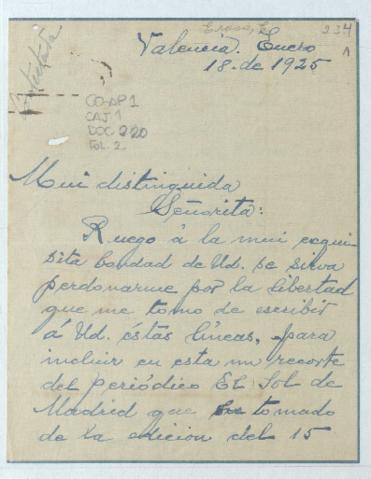 Erosa, E.
234
1
Contestada
Valencia. Enero
18. de 1925
CO-AP1
CAJ 1
DOC 220
FOL. 2
Mui distinguida
Señorita:
Ruego á la mui exqui
sita bondad de Ud. se sirva
perdonarme por la libertad
que me tomo de escribir
á Ud. éstas líneas, para
incluir en esta un recorte
del periódico El Sol de
Madrid que he tomado
de la edicion del 15